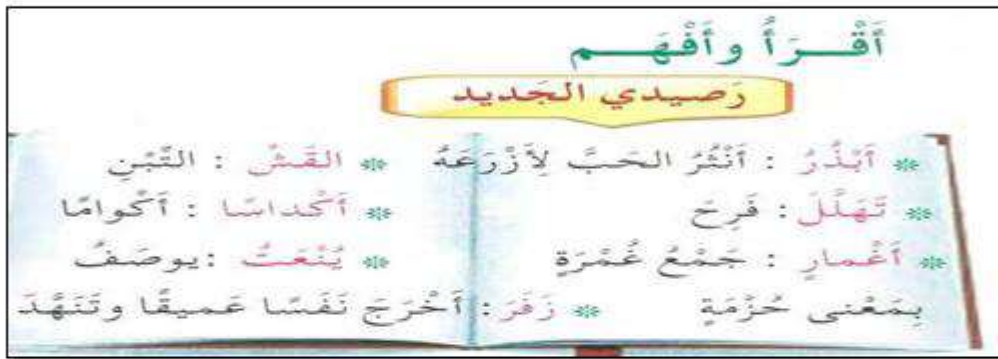 أَقْـــرَأُ وأَفْهَـــم
رَصيدي الجَديد
* أَبْذُرُ : أَنْثُرُ الحَبَّ لِأَزْرَعَهُ * القَشُّ : التِّبْنِ
* تَهَلَّلَ : فَرِحَ * أَكْداسًا : أَكْوامًا
* أَغْمارٍ : جَمْعُ غُمْرَةٍ * يُنْعَتُ : يوصَفُ
بِمَعْنى حُزْمَةٍ * زَفَرَ : أَخْرَجَ نَفَسًا عَميقًا وتَنَهَّدَ